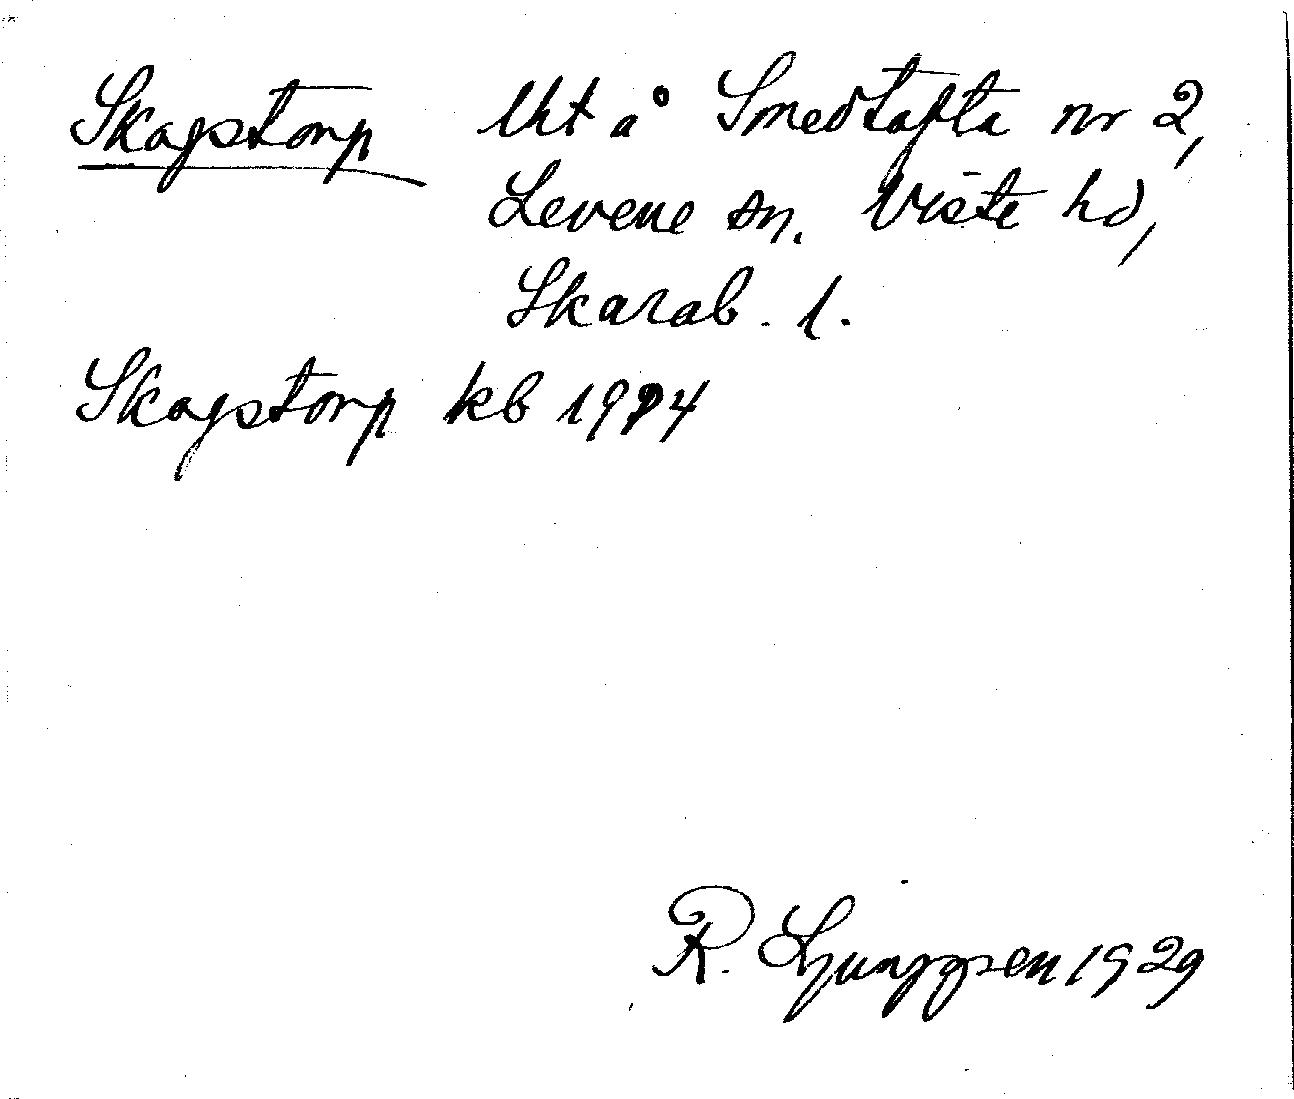 Skogstorp lht å Smedtofta nr 2,
Levene sn. Viste hd,
Skarab. l.
Skogstorp kb 1924
R. Ljunggren 1929